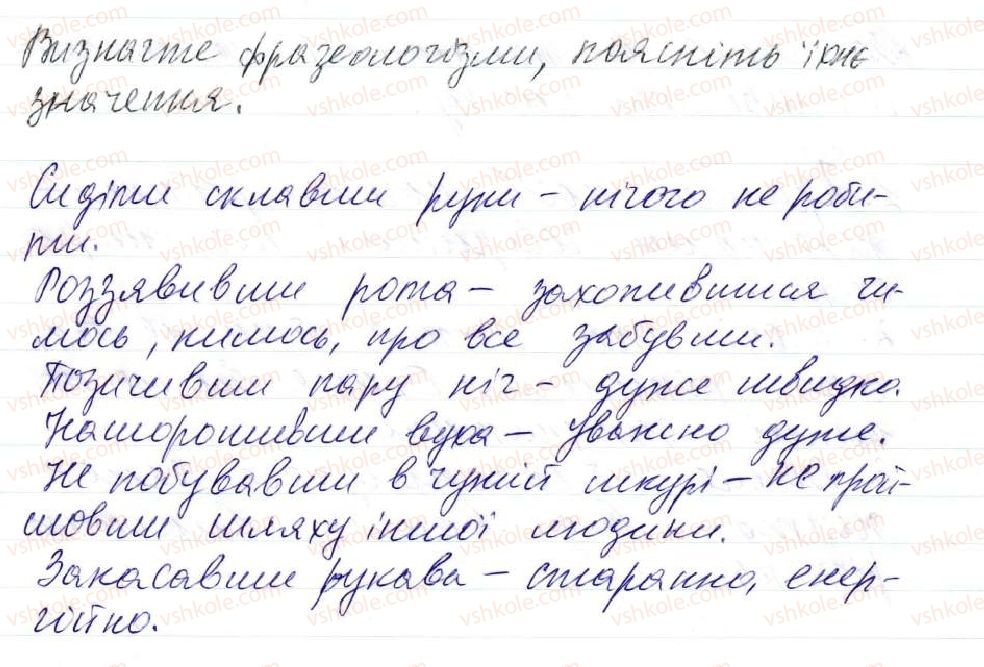 Визначте фразеологізми, поясніть їхнє
значення.
Сидіти склавши руки – нічого не роби-
ти.
Роззявивши рота – захопившися чи-
мось, кимось, про все забувши.
Позичивши пару ніг – дуже швидко.
Нашорошивши вуха – уважно дуже.
Не побувавши в чужій шкурі – не прой-
шовши шляху іншої людини.
Закасавши рукава – старанно, енер-
гійно.